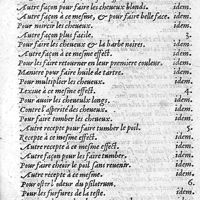 Autre façon pour faire les cheueux blonds. idem.
Autre façon à ce mesme, & pour faire belle face. idem.
Pour noircir les cheueux. idem.
Autre façon plus facile. 3.
Pour faire les cheueux & la barbe noires. idem.
Autre façon à ce mesme effect. idem.
Pour les faire retourner en leur premiere couleur. idem.
Maniere pour faire huile de tartre. idem.
Pour multiplier les cheueux. idem.
Lexiue à ce mesme effect. 4.
Pour auoir les cheueulx longs. idem.
Contre l'asperité des cheueux. idem.
Pour faire tomber les cheueux. idem.
Autre recepte pour faire tumber le poil. 5.
Recepte à ce mesme effect. idem.
Autre recepte à ce mesme effect. idem.
Autre façon pour les faire tumber. idem.
Pour faire cheoir le poil sans reuenir. idem.
Autre recepte à ce mesme. idem.
Pour oster l'odeur du psilotrum. 6.
Pour les furfures de la teste. idem.